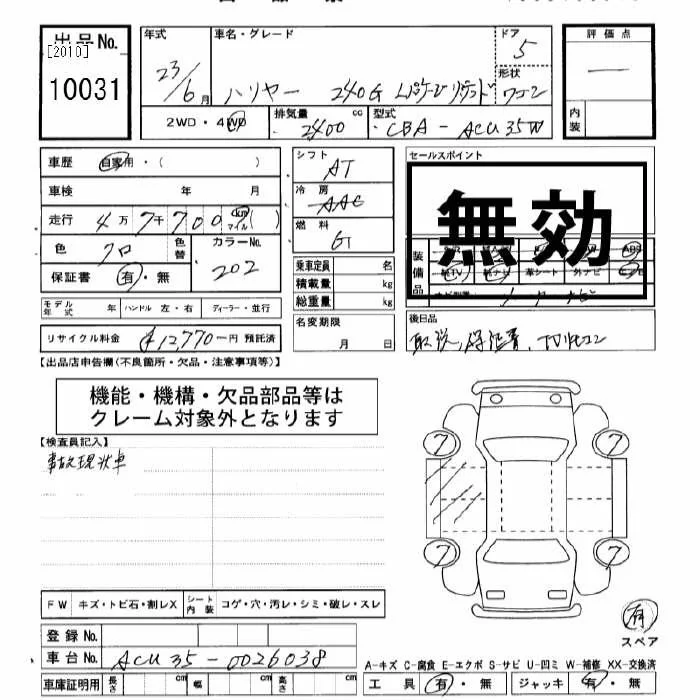 出品No.
[2010]
10031
年式
23/6月
車名・グレード
ハリヤー 240G Lパッケージ リミテッド
ドア
5
形状
ワゴン
評価点
—
内装
2WD・4WD
排気量
2400cc
型式
CBA-ACU35W
車歴 自家用・( )
車検 年 月
走行 4万7千700 km マイル( )
色 クロ
色替
カラーNo.
202
保証書 有・無
モデル年式 年 ハンドル 左・右 ディーラー・並行
リサイクル料金 ¥12,770-円 預託済
シフト
AT
冷房
AAC
燃料
GT
乗車定員 名
積載量 kg
総重量 kg
名変期限
月 日
セールスポイント
無効
装備品
純TV 純ナビ 革シート 外ナビ
後日品
取説,保証書,TVリモコン
【出品店申告欄(不良箇所・欠品・注意事項等)】
機能・機構・欠品部品等は
クレーム対象外となります
【検査員記入】
事故現状車
7
7
7
7
FW キズ・トビ石・割レX シート内装 コゲ・穴・汚レ・シミ・破レ・スレ
有
スペア
登録No.
車台No. ACU35-0026038
A-キズ C-腐食 E-エクボ S-サビ U-凹ミ W-補修 XX-交換済
車庫証明用 長さ cm 幅 cm 高さ cm
工具 有・無 ジャッキ 有・無